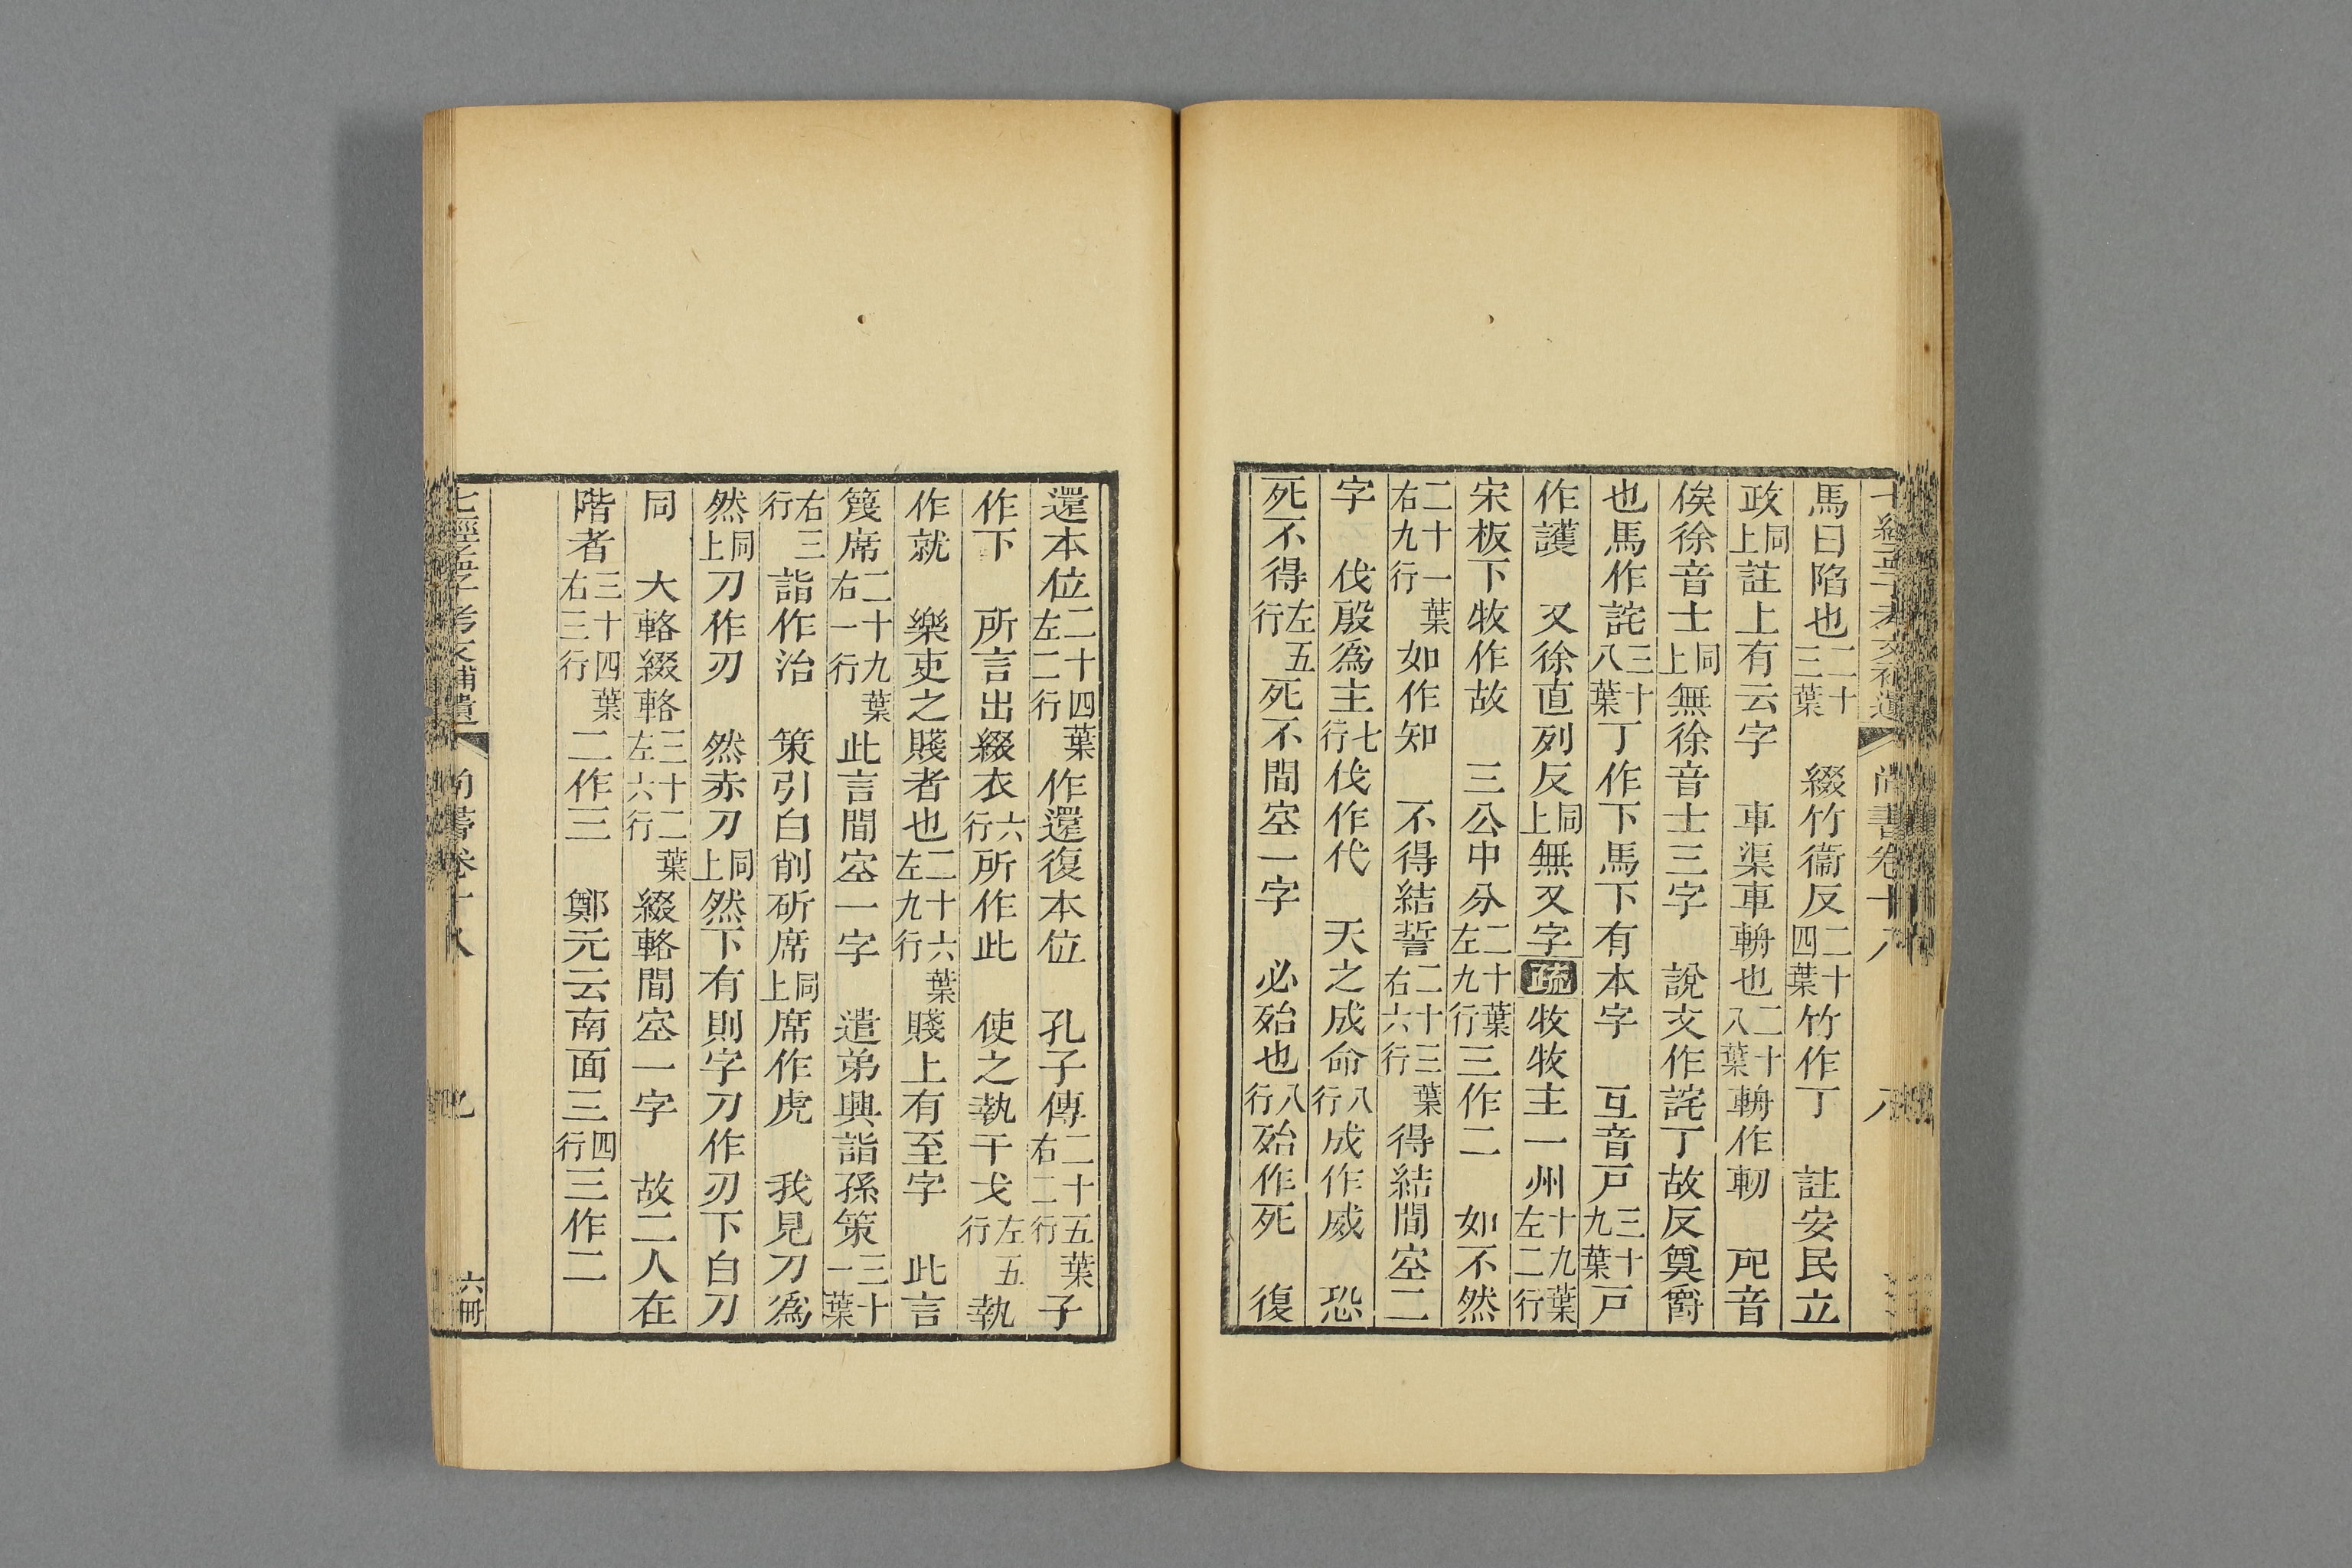 馬曰陷也二十三葉　綴竹衞反二十四葉竹作丁　註安民立
政同上註上有云字　車渠車輈也二十八葉輈作軔　戺音
俟徐音士同上無徐音士三字　說文作詫丁故反奠爵
也馬作詫三十八葉丁作下馬下有本字　互音戸三十九葉戸
作護　又徐直列反同上無又字疏牧牧主一州十九葉左二行
宋板下牧作故　三公中分二十葉左九行三作二　如不然
二十一葉右九行如作知　不得結誓二十三葉右六行得結間空二
字　伐殷爲主七行伐作代　天之成命八行成作威　恐
死不得左五行死不間空一字　必殆也八行殆作死　復
還本位二十四葉左二行作還復本位　孔子傳二十五葉右二行子
作下　所言出綴衣六行所作此　使之執干戈左五行執
作就　樂吏之賤者也二十六葉左九行賤上有至字　此言
篾席二十九葉右一行此言間空一字　遣弟興詣孫策三十一葉
右三行詣作治　策引白削斫席同上席作虎　我見刀爲
然同上刀作刃　然赤刀同上然下有則字刀作刃下白刀
同　大輅綴輅三十二葉左六行綴輅間空一字　故二人在
階者三十四葉右三行二作三　鄭元云南面三四行三作二
七經孟子考文補遺　尚書卷十八　六冊